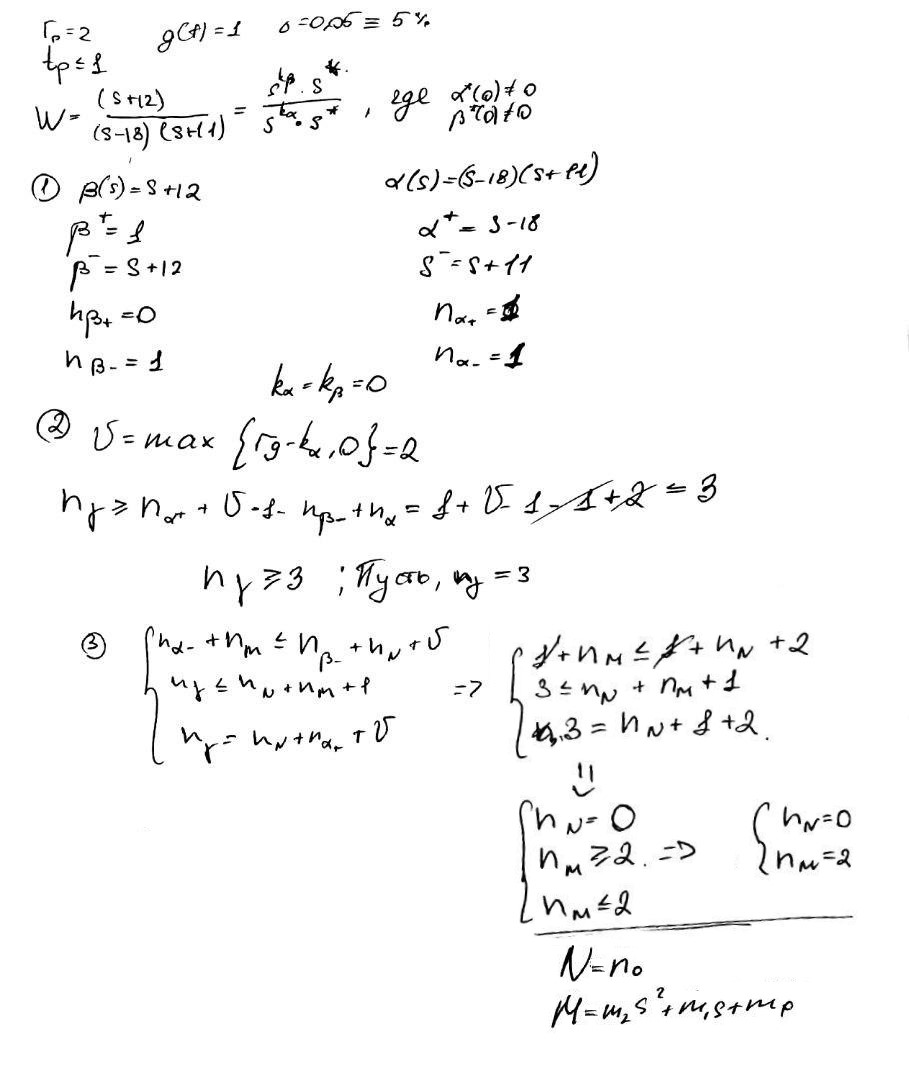 Γp = 2 g(t) = 1 σ = 0,05 ≡ 5 %
tp ≤ 1
W = (s+12) / ((s-18)(s+11)) = (s^kβ · s*) / (s^kα · s*), где α*(0) ≠ 0
β*(0) ≠ 0
① β(s) = s+12 α(s) = (s-18)(s+11)
β⁺ = 1 α⁺ = s-18
β⁻ = s+12 s⁻ = s+11
nβ+ = 0 nα+ = 1
nβ- = 1 nα- = 1
kα = kβ = 0
② υ = max {rg-kα, 0} = 2
nγ ≥ nα+ + υ - 1 - nβ- + nα = 1 + υ - 1 - 1 + 2 = 3
nγ ≥ 3 ; Пусть, nγ = 3
③ { nα- + nM ≤ nβ- + nN + υ => { 1 + nM ≤ 1 + nN + 2
nγ ≤ nN + nM + 1 3 ≤ nN + nM + 1
nγ = nN + nα+ + υ 3 = nN + 1 + 2.
⇓
{ nN = 0 { nN = 0
nM ≥ 2. => nM = 2
nM ≤ 2
N = n₀
M = m₂s² + m₁s + m₀